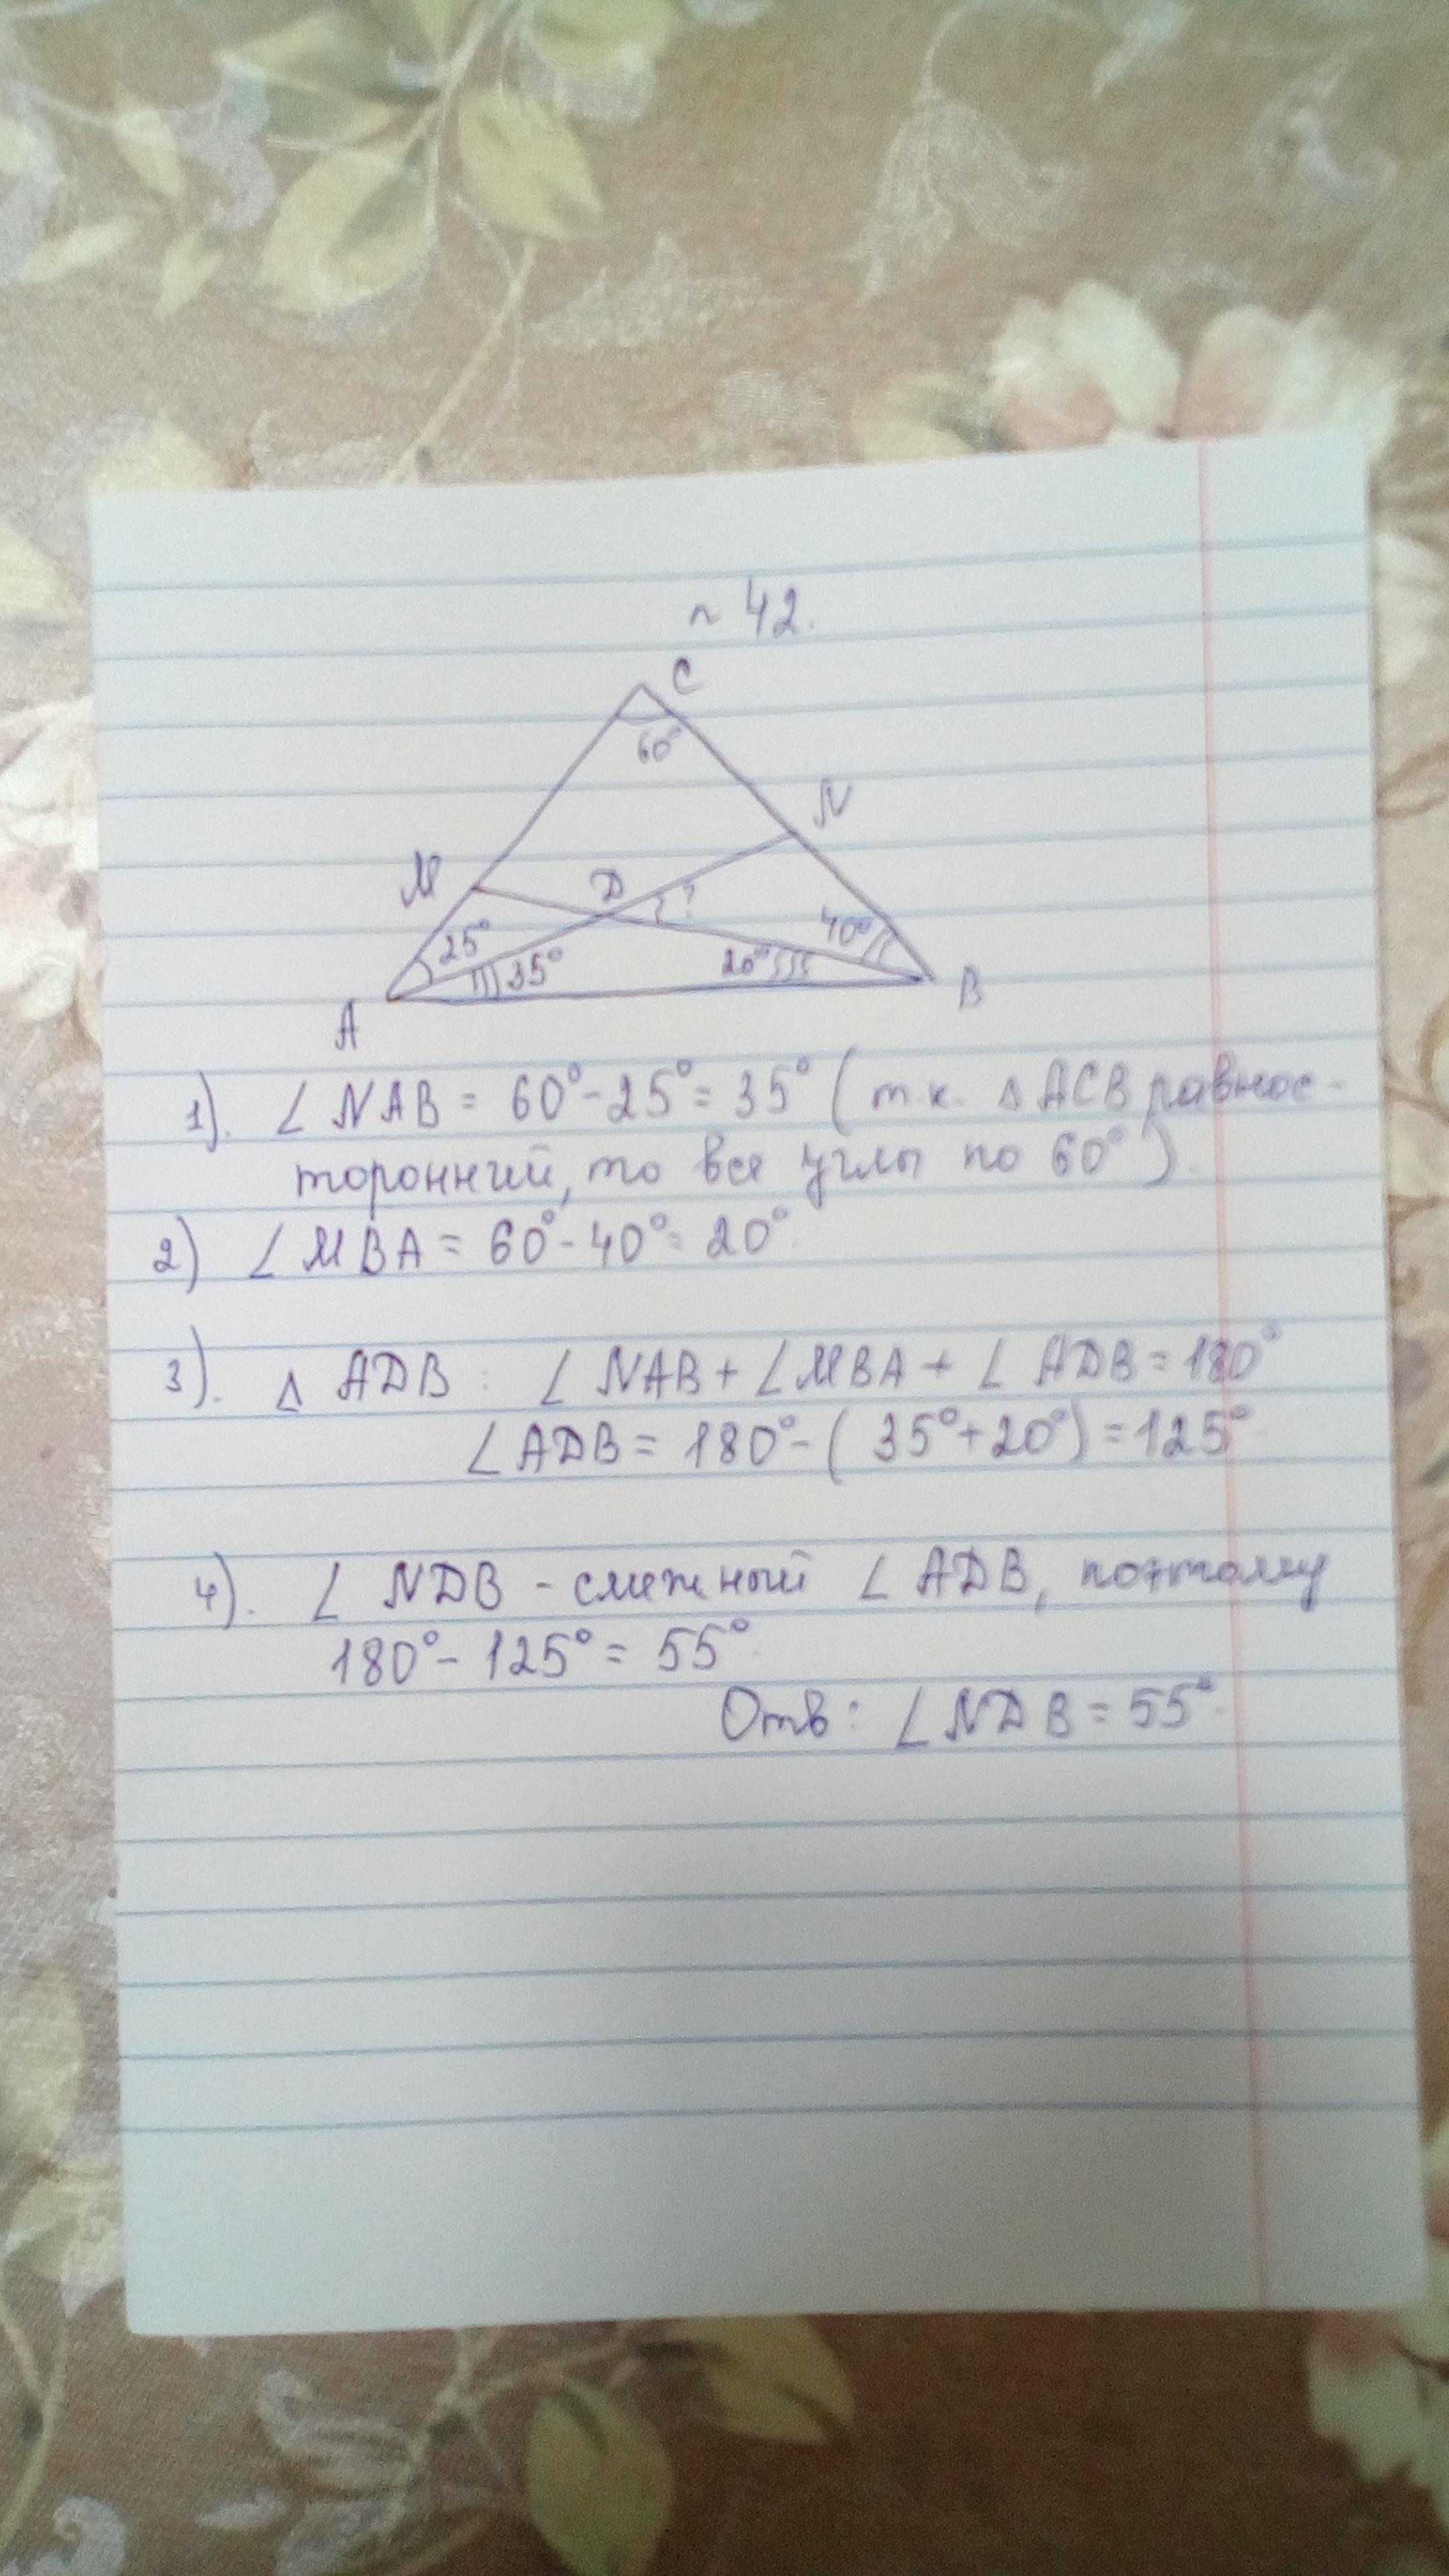 № 42.
C
60°
N
M
D
?
25°
40°
35°
20°
B
A
1). ∠ NAB = 60° - 25° = 35° (т.к. △ ACB равнос-
торонний, то все углы по 60°).
2) ∠ MBA = 60° - 40° = 20°.
3). △ ADB : ∠ NAB + ∠ MBA + ∠ ADB = 180°
∠ ADB = 180° - ( 35° + 20° ) = 125°.
4). ∠ NDB - смежный ∠ ADB, поэтому
180° - 125° = 55°.
Отв: ∠ NDB = 55°.